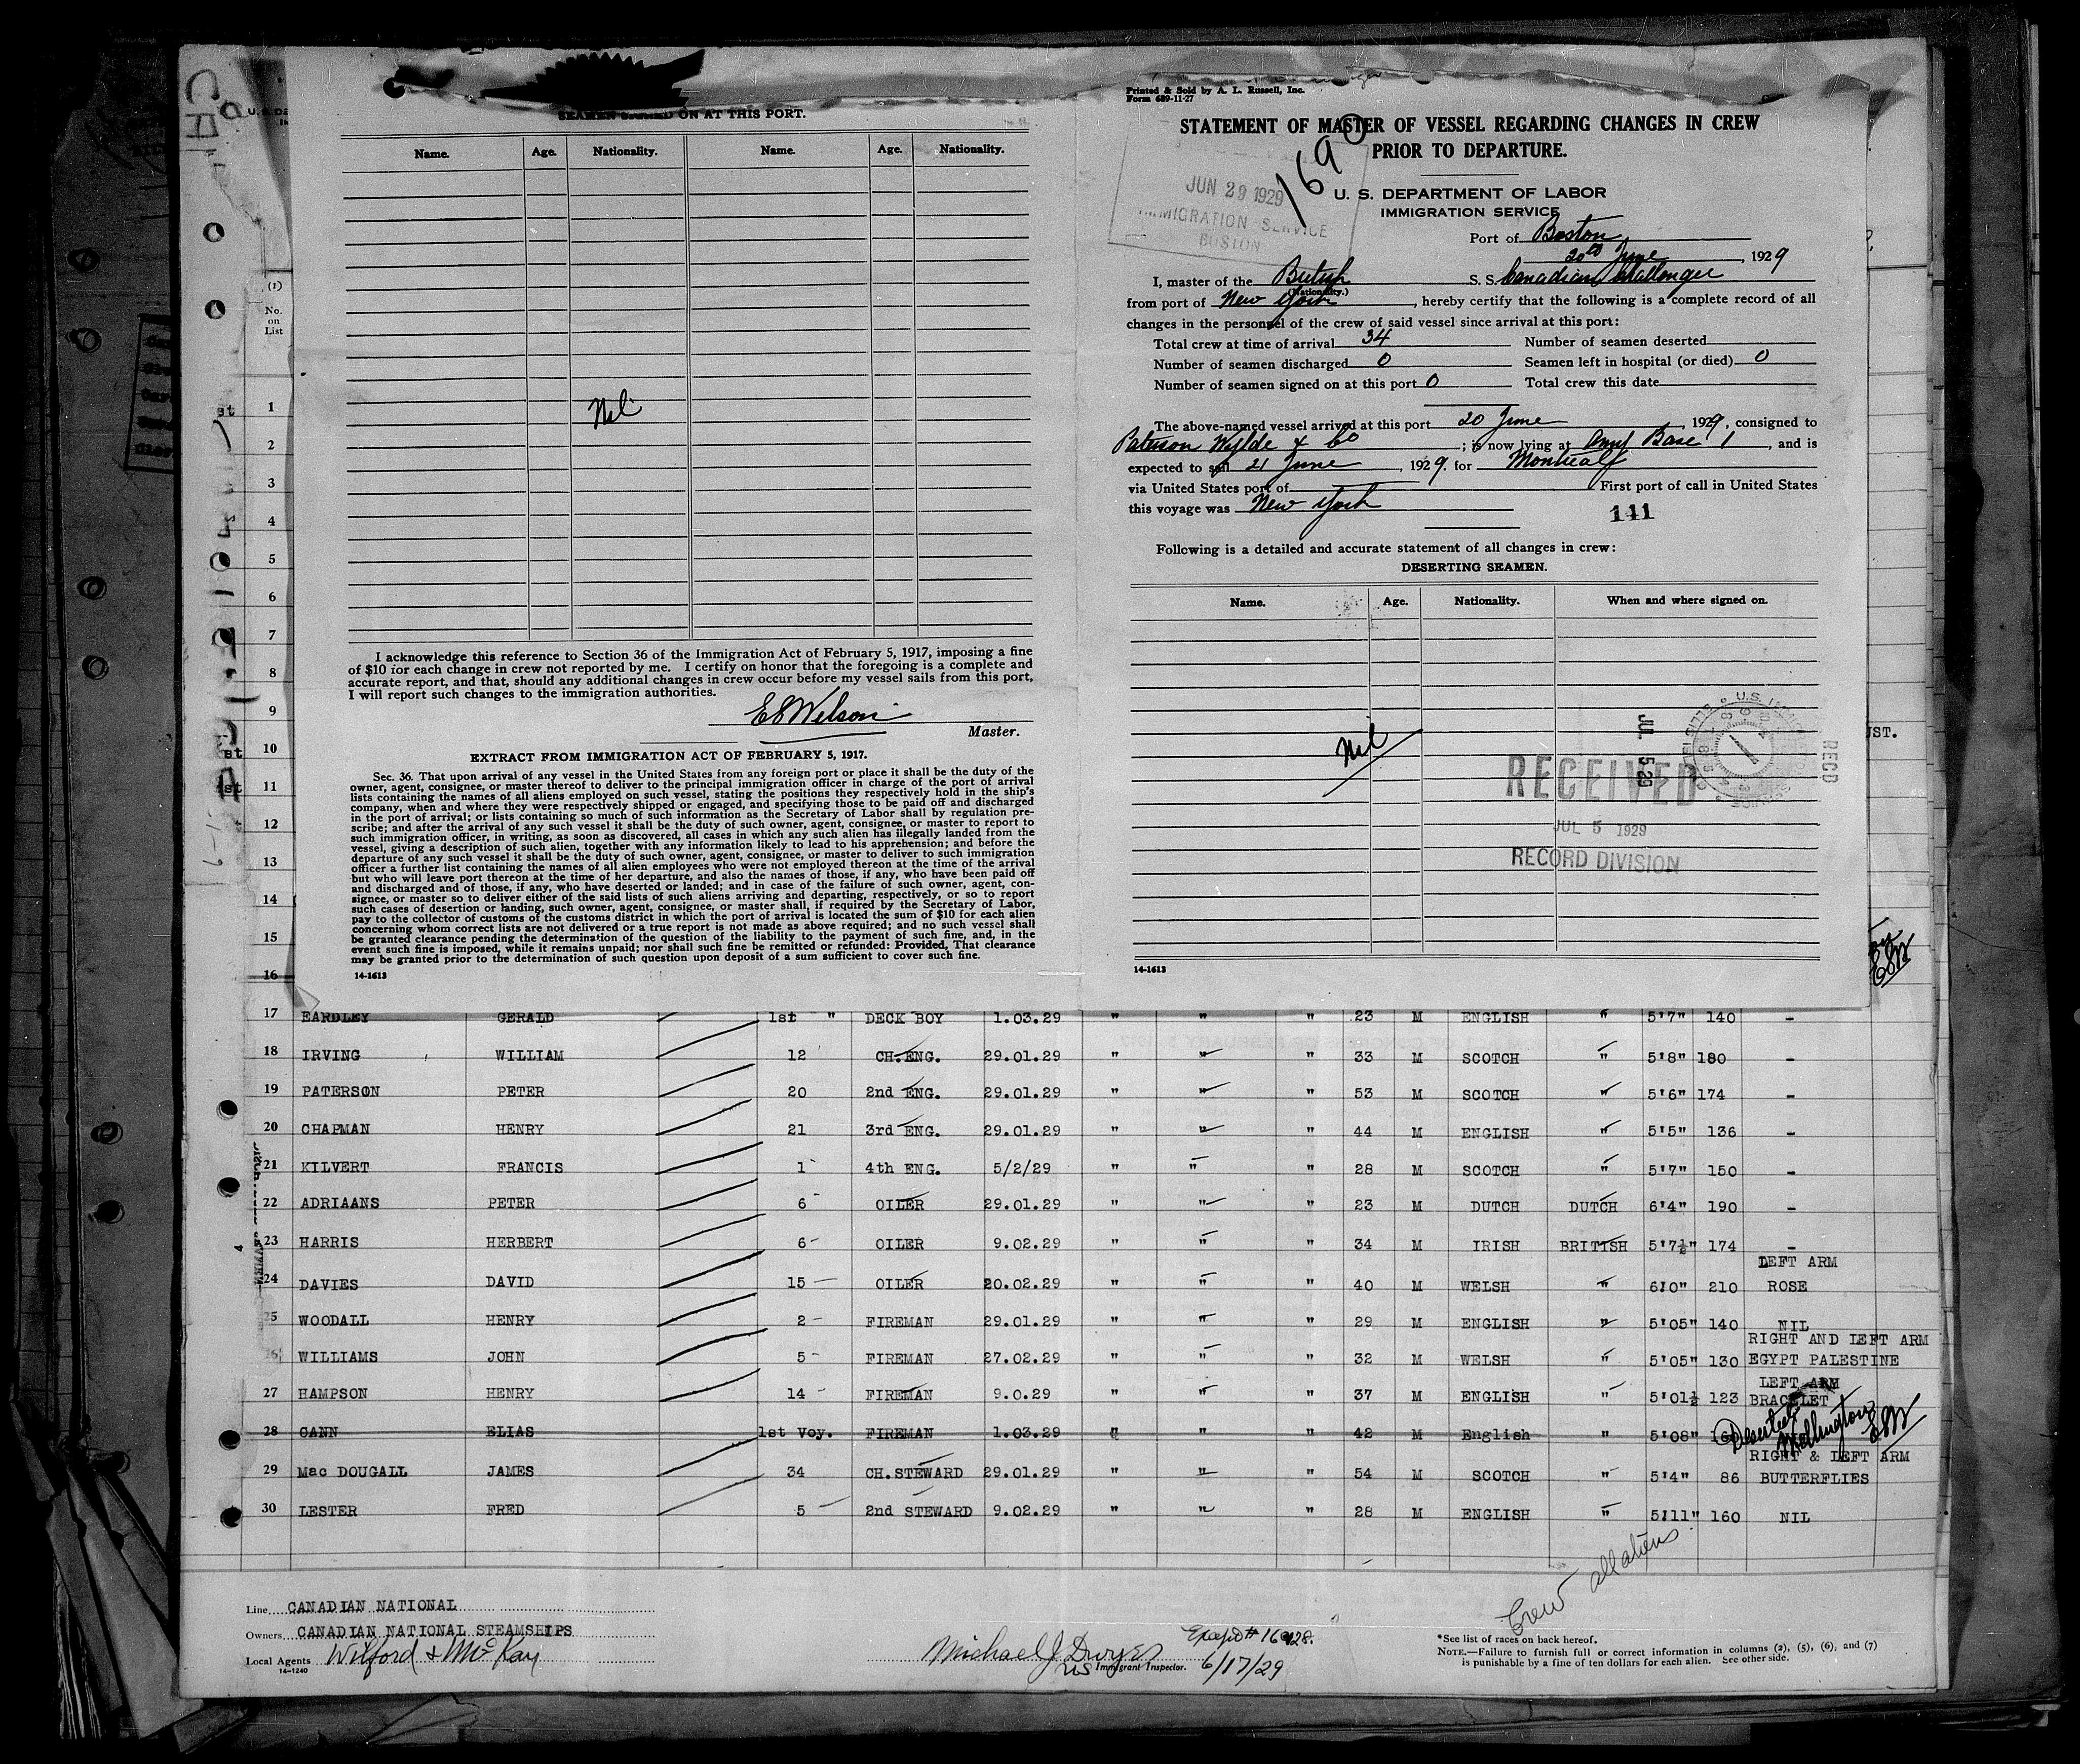 SEAMEN SIGNED ON AT THIS PORT.
Name. Age. Nationality. Name. Age. Nationality.
Nil
I acknowledge this reference to Section 36 of the Immigration Act of February 5, 1917, imposing a fine
of $10 for each change in crew not reported by me. I certify on honor that the foregoing is a complete and
accurate report, and that, should any additional changes in crew occur before my vessel sails from this port,
I will report such changes to the immigration authorities.
E S Wilson
Master.
EXTRACT FROM IMMIGRATION ACT OF FEBRUARY 5, 1917.
Sec. 36. That upon arrival of any vessel in the United States from any foreign port or place it shall be the duty of the
owner, agent, consignee, or master thereof to deliver to the principal immigration officer in charge of the port of arrival
lists containing the names of all aliens employed on such vessel, stating the positions they respectively hold in the ship's
company, when and where they were respectively shipped or engaged, and specifying those to be paid off and discharged
in the port of arrival; or lists containing so much of such information as the Secretary of Labor shall by regulation pre-
scribe; and after the arrival of any such vessel it shall be the duty of such owner, agent, consignee, or master to report to
such immigration officer, in writing, as soon as discovered, all cases in which any such alien has illegally landed from the
vessel, giving a description of such alien, together with any information likely to lead to his apprehension; and before the
departure of any such vessel it shall be the duty of such owner, agent, consignee, or master to deliver to such immigration
officer a further list containing the names of all alien employees who were not employed thereon at the time of the arrival
but who will leave port thereon at the time of her departure, and also the names of those, if any, who have been paid off
and discharged and of those, if any, who have deserted or landed; and in case of the failure of such owner, agent, con-
signee, or master so to deliver either of the said lists of such aliens arriving and departing, respectively, or so to report
such cases of desertion or landing, such owner, agent, consignee, or master shall, if required by the Secretary of Labor,
pay to the collector of customs of the customs district in which the port of arrival is located the sum of $10 for each alien
concerning whom correct lists are not delivered or a true report is not made as above required; and no such vessel shall
be granted clearance pending the determination of the question of the liability to the payment of such fine, and, in the
event such fine is imposed, while it remains unpaid; nor shall such fine be remitted or refunded: Provided, That clearance
may be granted prior to the determination of such question upon deposit of a sum sufficient to cover such fine.
14-1613
Printed & Sold by A. L. Russell, Inc.
Form 689-11-27
STATEMENT OF MASTER OF VESSEL REGARDING CHANGES IN CREW
PRIOR TO DEPARTURE.
1690
JUN 29 1929
IMMIGRATION SERVICE
BOSTON
U. S. DEPARTMENT OF LABOR
IMMIGRATION SERVICE
Port of Boston
20th June, 1929
I, master of the British S. S. Canadian Challenger
(Nationality.)
from port of New York, hereby certify that the following is a complete record of all
changes in the personnel of the crew of said vessel since arrival at this port:
Total crew at time of arrival 34 Number of seamen deserted
Number of seamen discharged 0 Seamen left in hospital (or died) 0
Number of seamen signed on at this port 0 Total crew this date
The above-named vessel arrived at this port 20 June 1929, consigned to
Paterson Wylde & Co; is now lying at Army Base 1, and is
expected to sail 21 June, 1929. for Montreal
via United States port of First port of call in United States
this voyage was New York
141
Following is a detailed and accurate statement of all changes in crew:
DESERTING SEAMEN.
Name. Age. Nationality. When and where signed on.
Nil
RECEIVED
JUL 5 1929
RECORD DIVISION
JUL 5 29
RECD
(1)
No.
on
List
1
2
3
4
5
6
7
8
9
10
11
12
13
14
15
16
17 EARDLEY GERALD 1st " DECK BOY 1.03.29 " " " 23 M ENGLISH " 5'7" 140 -
18 IRVING WILLIAM 12 CH.ENG. 29.01.29 " " " 33 M SCOTCH " 5'8" 180 -
19 PATERSON PETER 20 2nd ENG. 29.01.29 " " " 53 M SCOTCH " 5'6" 174 -
20 CHAPMAN HENRY 21 3rd ENG. 29.01.29 " " " 44 M ENGLISH " 5'5" 136 -
21 KILVERT FRANCIS 1 4th ENG. 5/2/29 " " " 28 M SCOTCH " 5'7" 150 -
22 ADRIAANS PETER 6 OILER 29.01.29 " " " 23 M DUTCH DUTCH 6'4" 190 -
23 HARRIS HERBERT 6 OILER 9.02.29 " " " 34 M IRISH BRITISH 5'7½" 174 -
24 DAVIES DAVID 15 OILER 20.02.29 " " " 40 M WELSH " 6'0" 210 LEFT ARM ROSE
25 WOODALL HENRY 2 FIREMAN 29.01.29 " " " 29 M ENGLISH " 5'05" 140 NIL
26 WILLIAMS JOHN 5 FIREMAN 27.02.29 " " " 32 M WELSH " 5'05" 130 RIGHT AND LEFT ARM EGYPT PALESTINE
27 HAMPSON HENRY 14 FIREMAN 9.0.29 " " " 37 M ENGLISH " 5'01½ 123 LEFT ARM BRACELET
28 CANN ELIAS 1st Voy. FIREMAN 1.03.29 " " " 42 M English " 5'08" Deserted Wellington ESW
29 Mac DOUGALL JAMES 34 CH.STEWARD 29.01.29 " " " 54 M SCOTCH " 5'4" 86 RIGHT & LEFT ARM BUTTERFLIES
30 LESTER FRED 5 2nd STEWARD 9.02.29 " " " 28 M ENGLISH " 5'11" 160 NIL
Crew all aliens
Line CANADIAN NATIONAL
Owners CANADIAN NATIONAL STEAMSHIPS
Local Agents Wilford & McKay
14-1240
Michael J Dwyer
US Immigrant Inspector. 6/17/29
*See list of races on back hereof.
NOTE.—Failure to furnish full or correct information in columns (2), (5), (6), and (7)
is punishable by a fine of ten dollars for each alien. See other side.